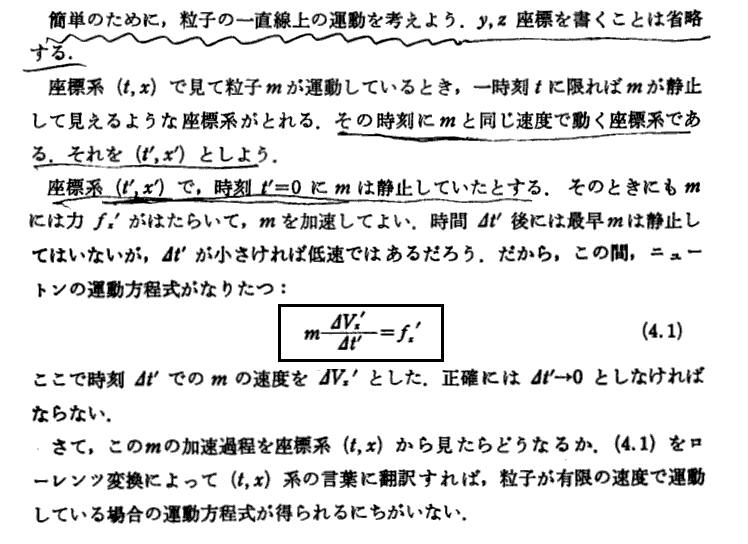 簡単のために，粒子の一直線上の運動を考えよう．y, z 座標を書くことは省略
する．
座標系 (t, x) で見て粒子 m が運動しているとき，一時刻 t に限れば m が静止
して見えるような座標系がとれる．その時刻に m と同じ速度で動く座標系であ
る．それを (t′, x′) としよう．
座標系 (t′, x′) で，時刻 t′=0 に m は静止していたとする．そのときにも m
には力 fₓ′ がはたらいて，m を加速してよい．時間 Δt′ 後には最早 m は静止し
てはいないが，Δt′ が小さければ低速ではあるだろう．だから，この間，ニュー
トンの運動方程式がなりたつ：
m ΔVₓ′/Δt′ = fₓ′ (4.1)
ここで時刻 Δt′ での m の速度を ΔVₓ′ とした．正確には Δt′→0 としなければ
ならない．
さて，この m の加速過程を座標系 (t, x) から見たらどうなるか．(4.1) をロ
ーレンツ変換によって (t, x) 系の言葉に翻訳すれば，粒子が有限の速度で運動
している場合の運動方程式が得られるにちがいない．